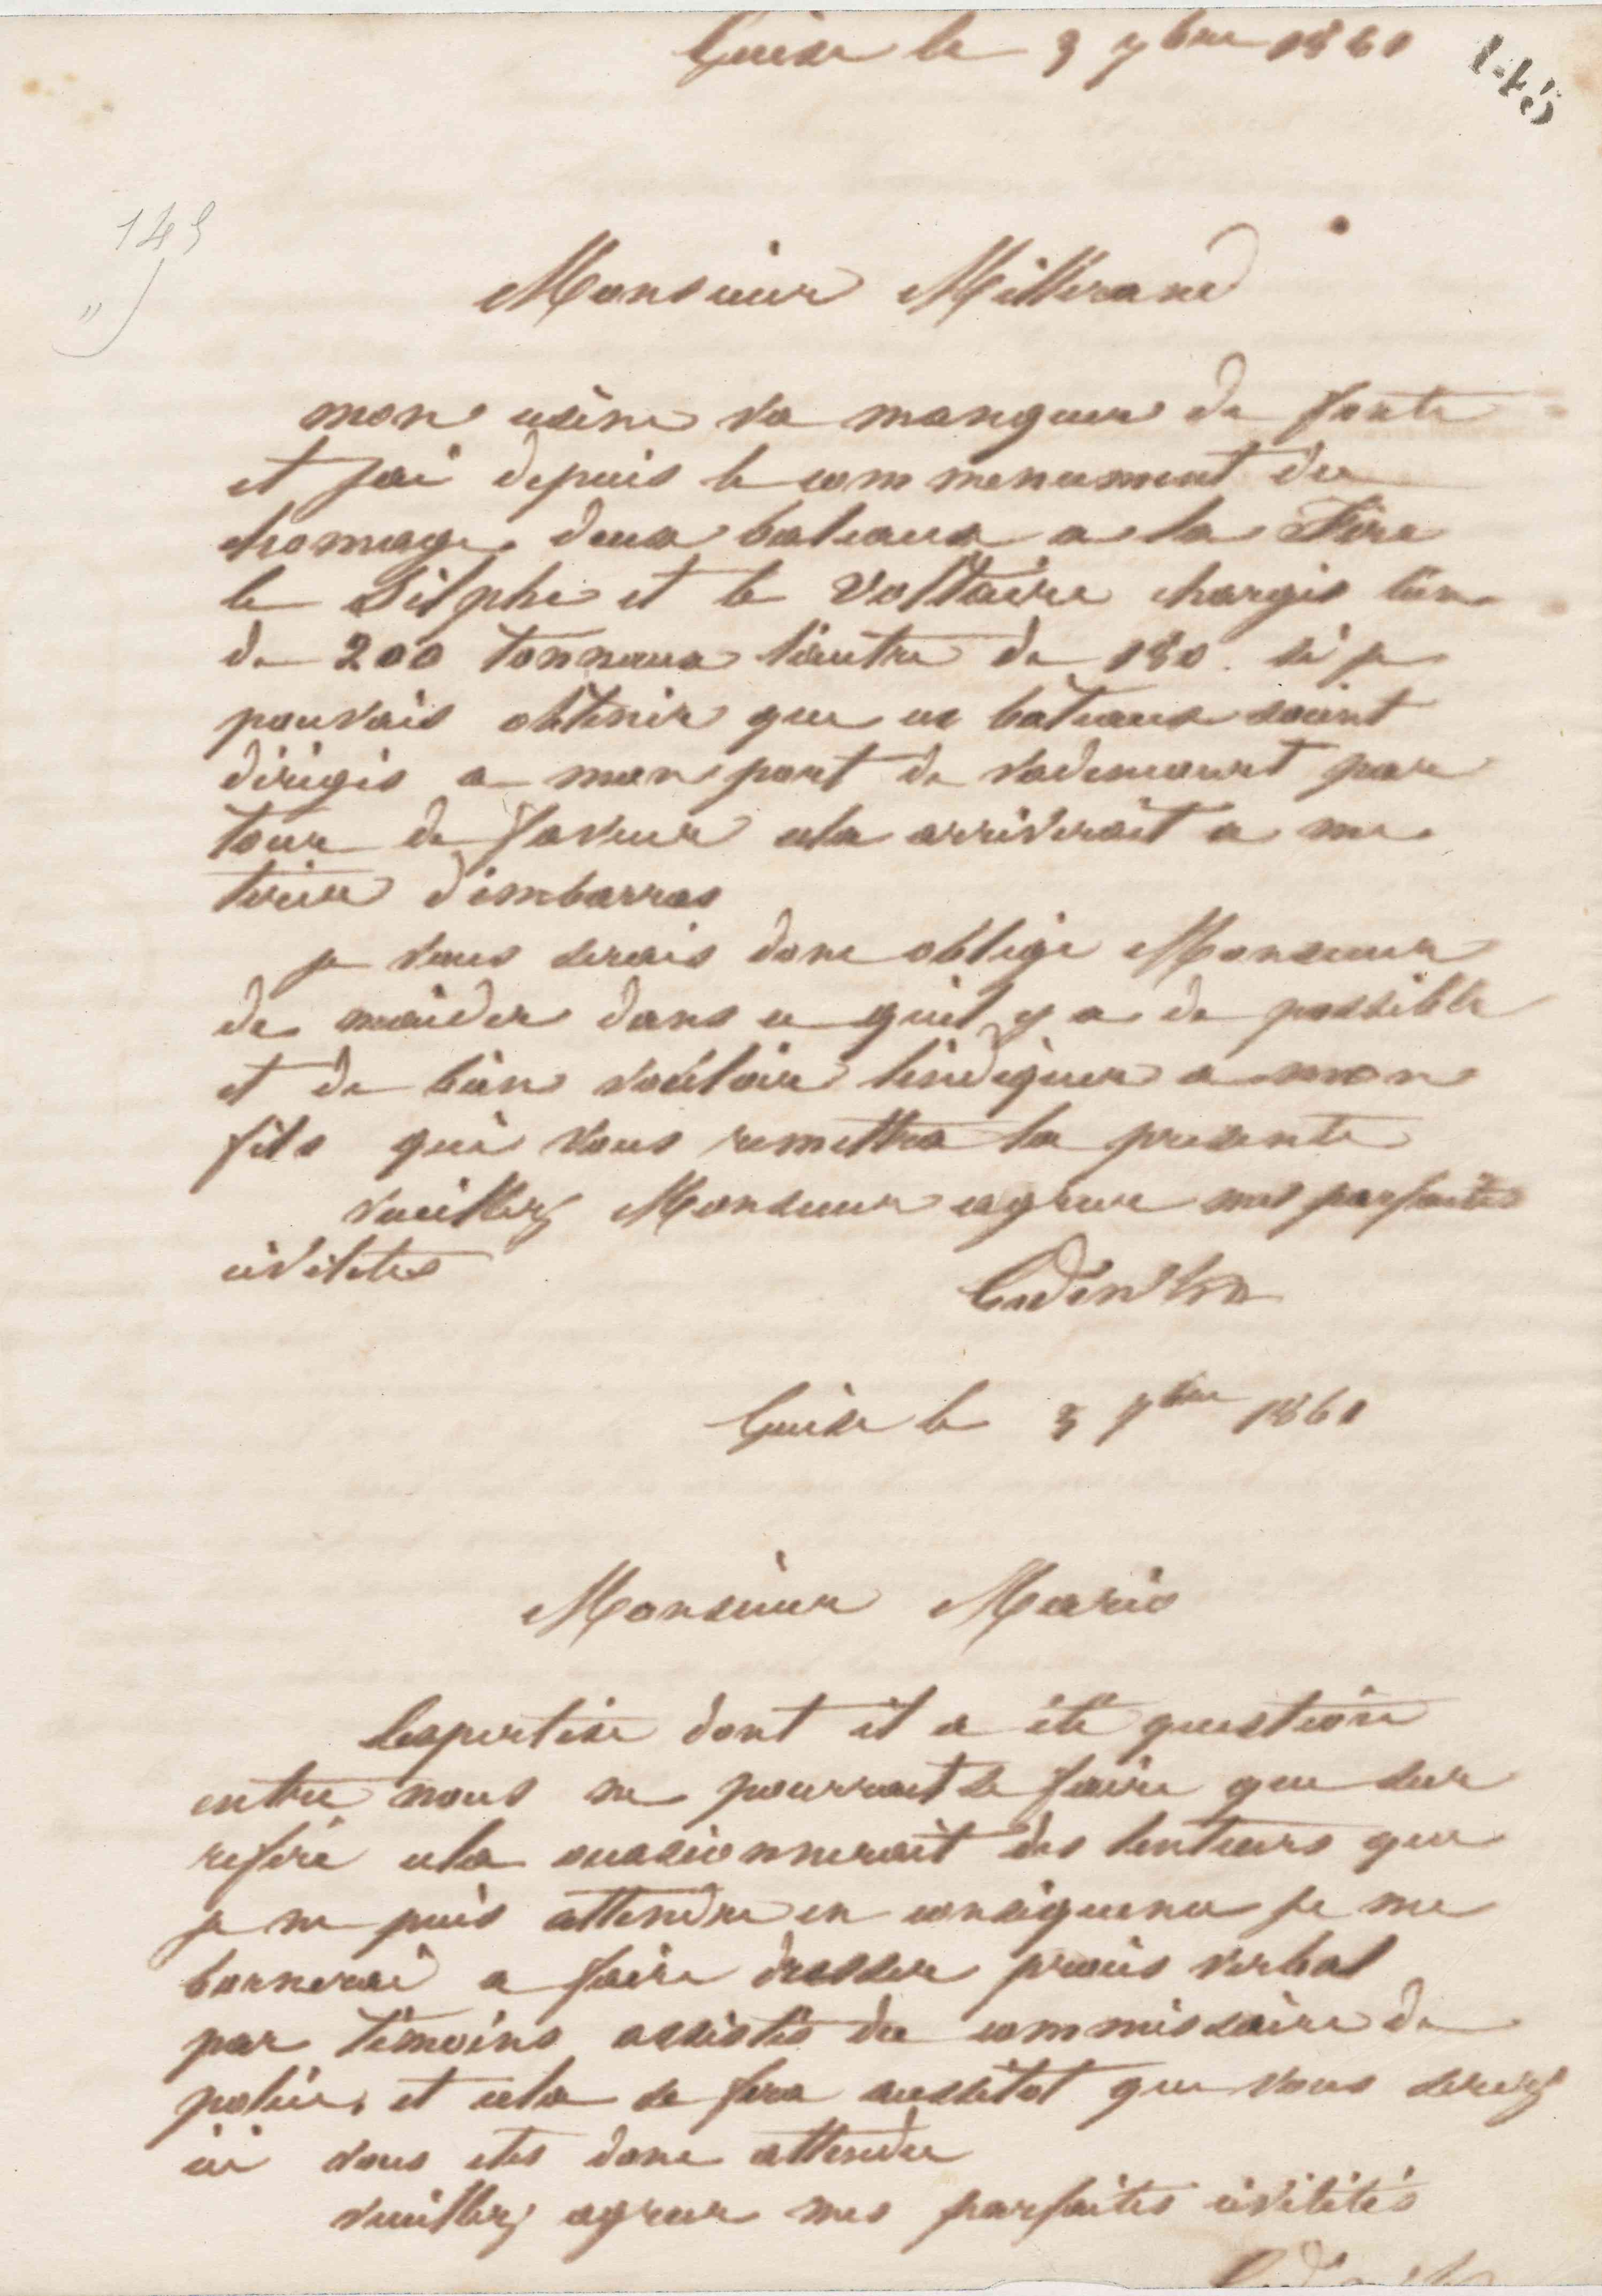 Guise le 3 7bre 1861
145
145
Monsieur Millerand
mon usine va manquer de fonte
et jai depuis le commencement du
chomage deux bateaux a la Fère
le Silphe et le Voltaire chargés l'un
de 200 tonneaux l'autre de 180. si je
pouvais obtenir que ces bateaux soient
dirigés a mon port de vadencourt par
tour de faveur cela arriverait a me
tirer d'embarras
je vous serais donc obligé Monsieur
de m'aider dans ce qu'il y a de possible
et de bien vouloir l'indiquer a mon
fils qui vous remettra la presente
veuillez Monsieur agreer mes parfaites
civilites
Godin
Guise le 3 7bre 1861
Monsieur
Lexpertise dont il a été question
entre nous ne pourrait se faire que sur
reféré cela occasionnerait des lenteurs que
je ne puis attendre en conséquence je me
bornerai a faire dresser procès verbal
par témoins assistés du commissaire de
police, et cela se fera aussitot que vous serez
ici vous etes donc attendu
veuillez agreer mes parfaites civilités